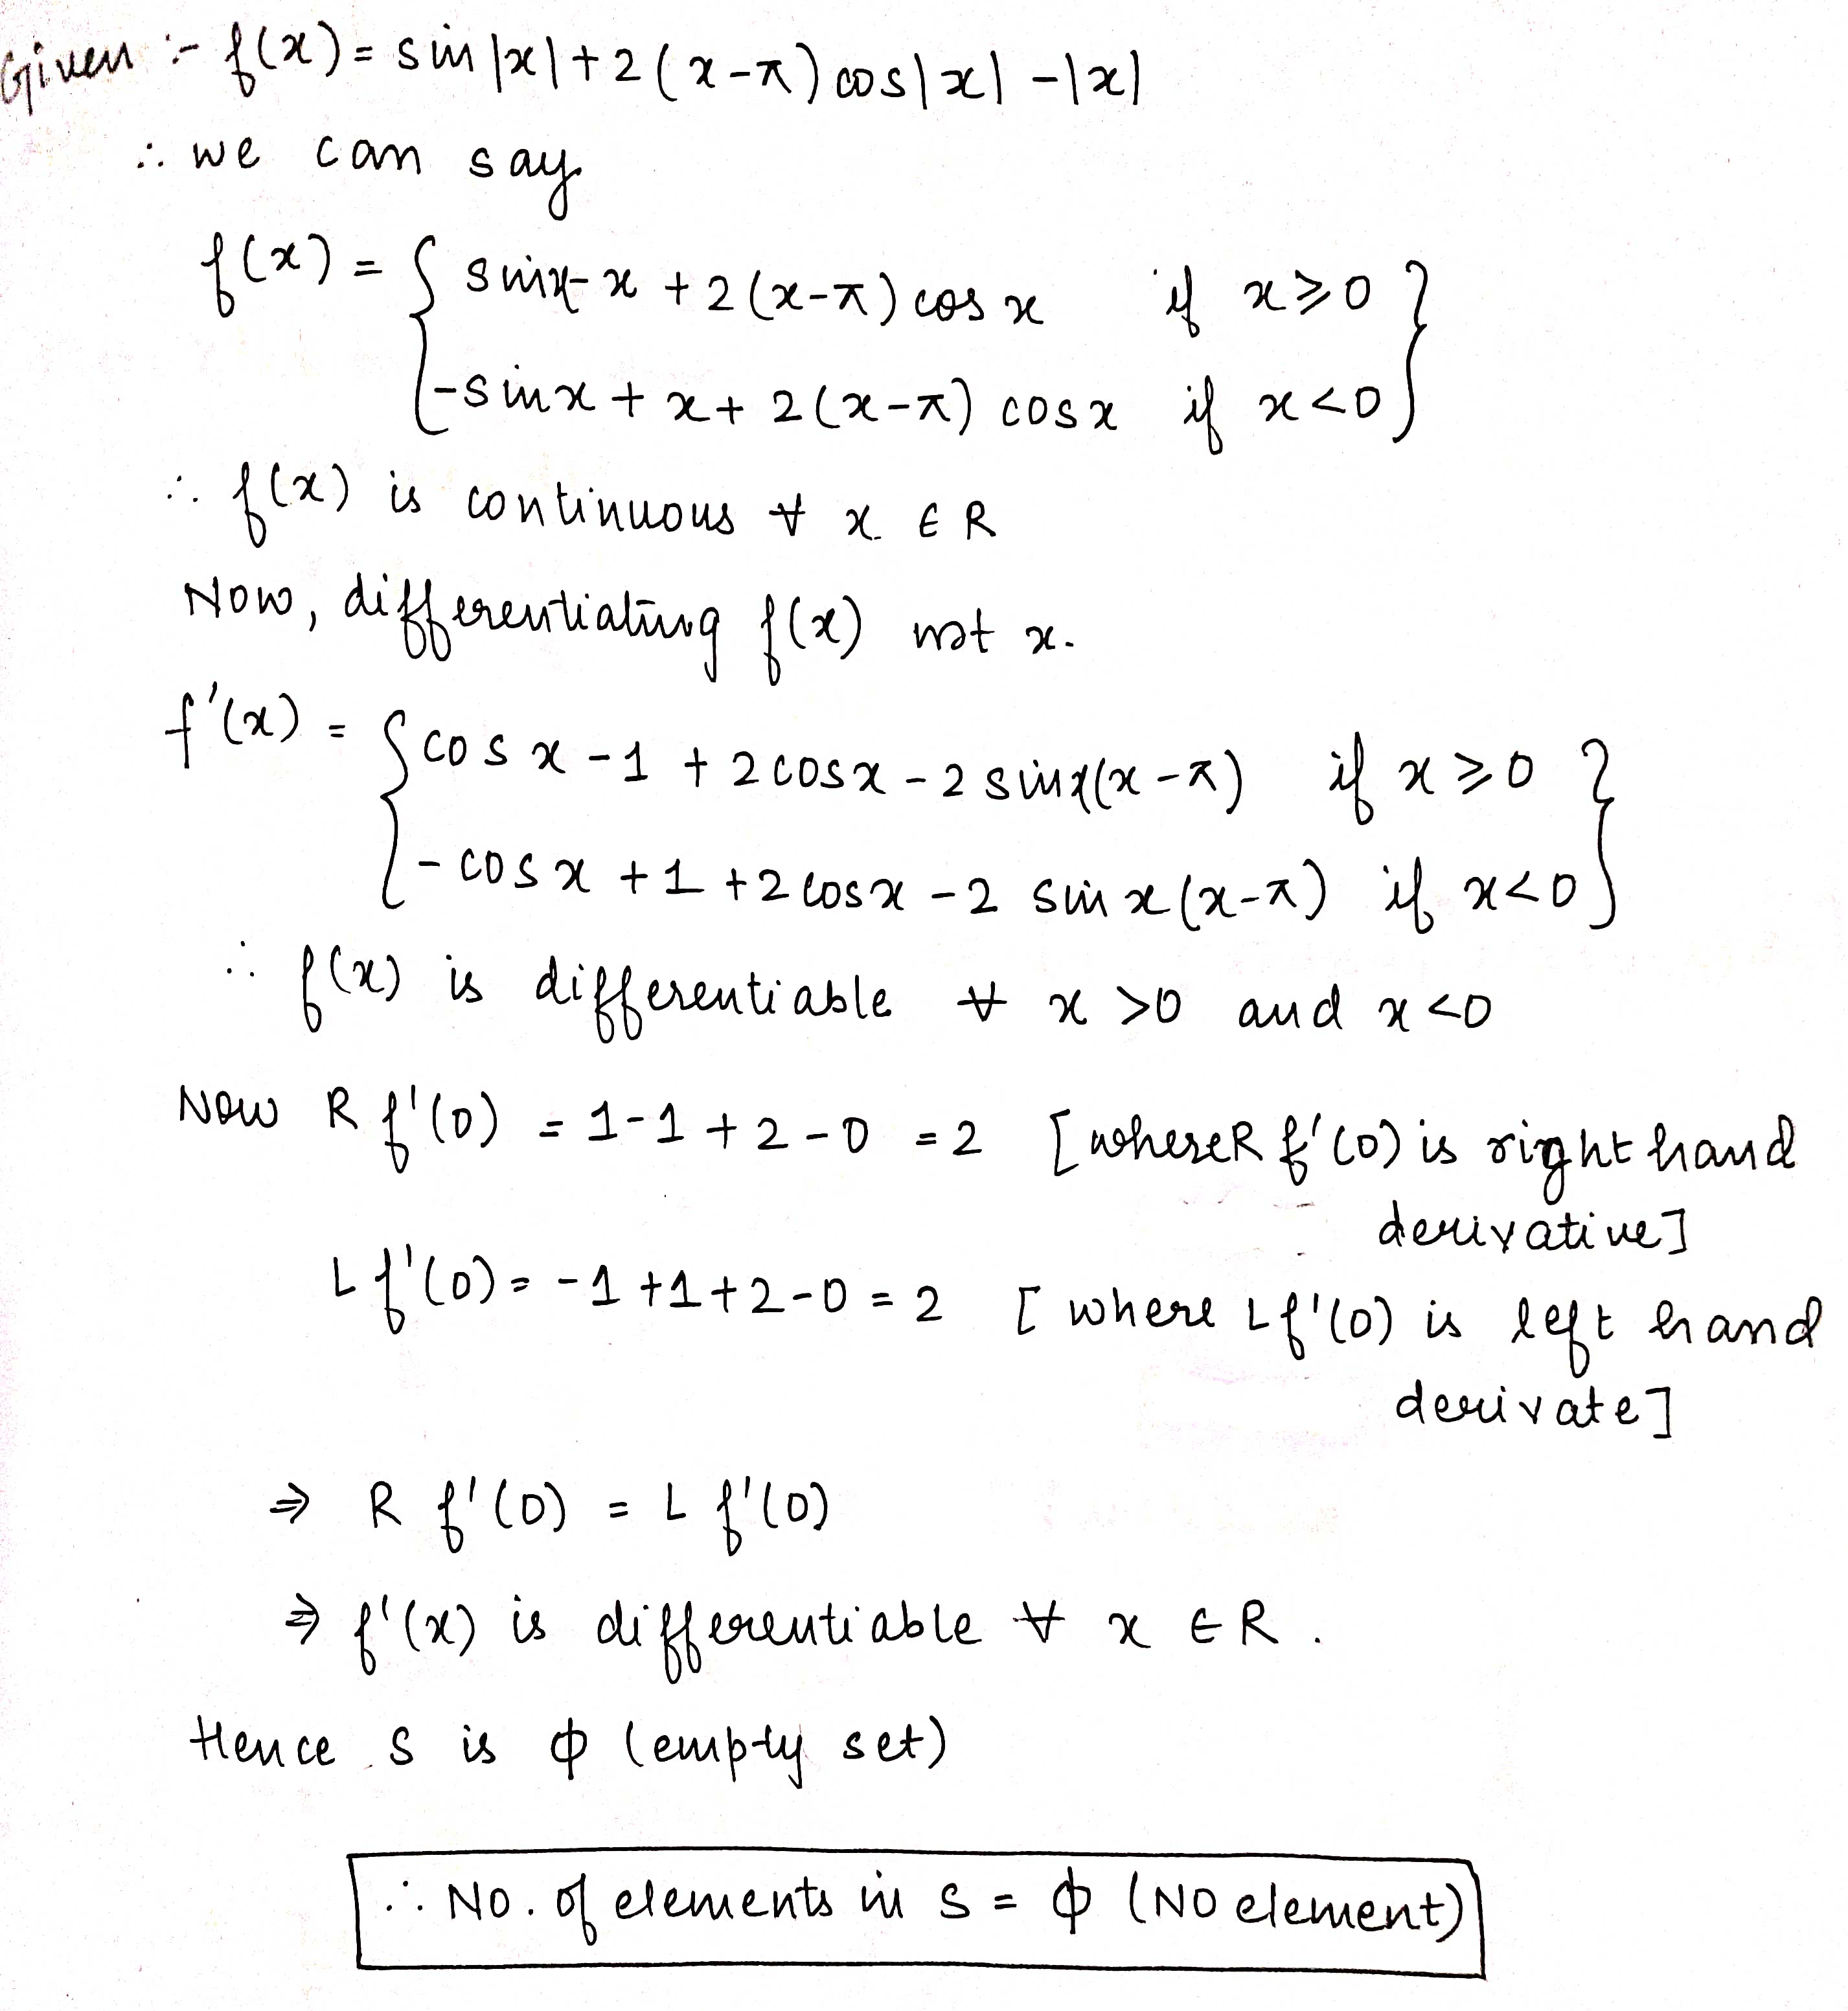 Given :- f(x) = sin |x| + 2 (x-π) cos|x| - |x|
∴ we can say
f(x) = { sinx - x + 2(x-π) cos x if x ≥ 0 }
{ -sinx + x + 2(x-π) cosx if x < 0 }
∴ f(x) is continuous ∀ x ∈ R
Now, differentiating f(x) wrt x.
f'(x) = { cos x - 1 + 2 cosx - 2 sinx(x-π) if x ≥ 0 }
{ - cosx + 1 + 2 cosx - 2 sinx(x-π) if x < 0 }
∴ f(x) is differentiable ∀ x > 0 and x < 0
Now R f'(0) = 1-1 + 2 - 0 = 2 [where R f'(0) is right hand
derivative]
L f'(0) = -1 + 1 + 2 - 0 = 2 [ where L f'(0) is left hand
derivate]
⇒ R f'(0) = L f'(0)
⇒ f'(x) is differentiable ∀ x ∈ R .
Hence s is ϕ (empty set)
∴ NO. of elements in S = ϕ (NO element)